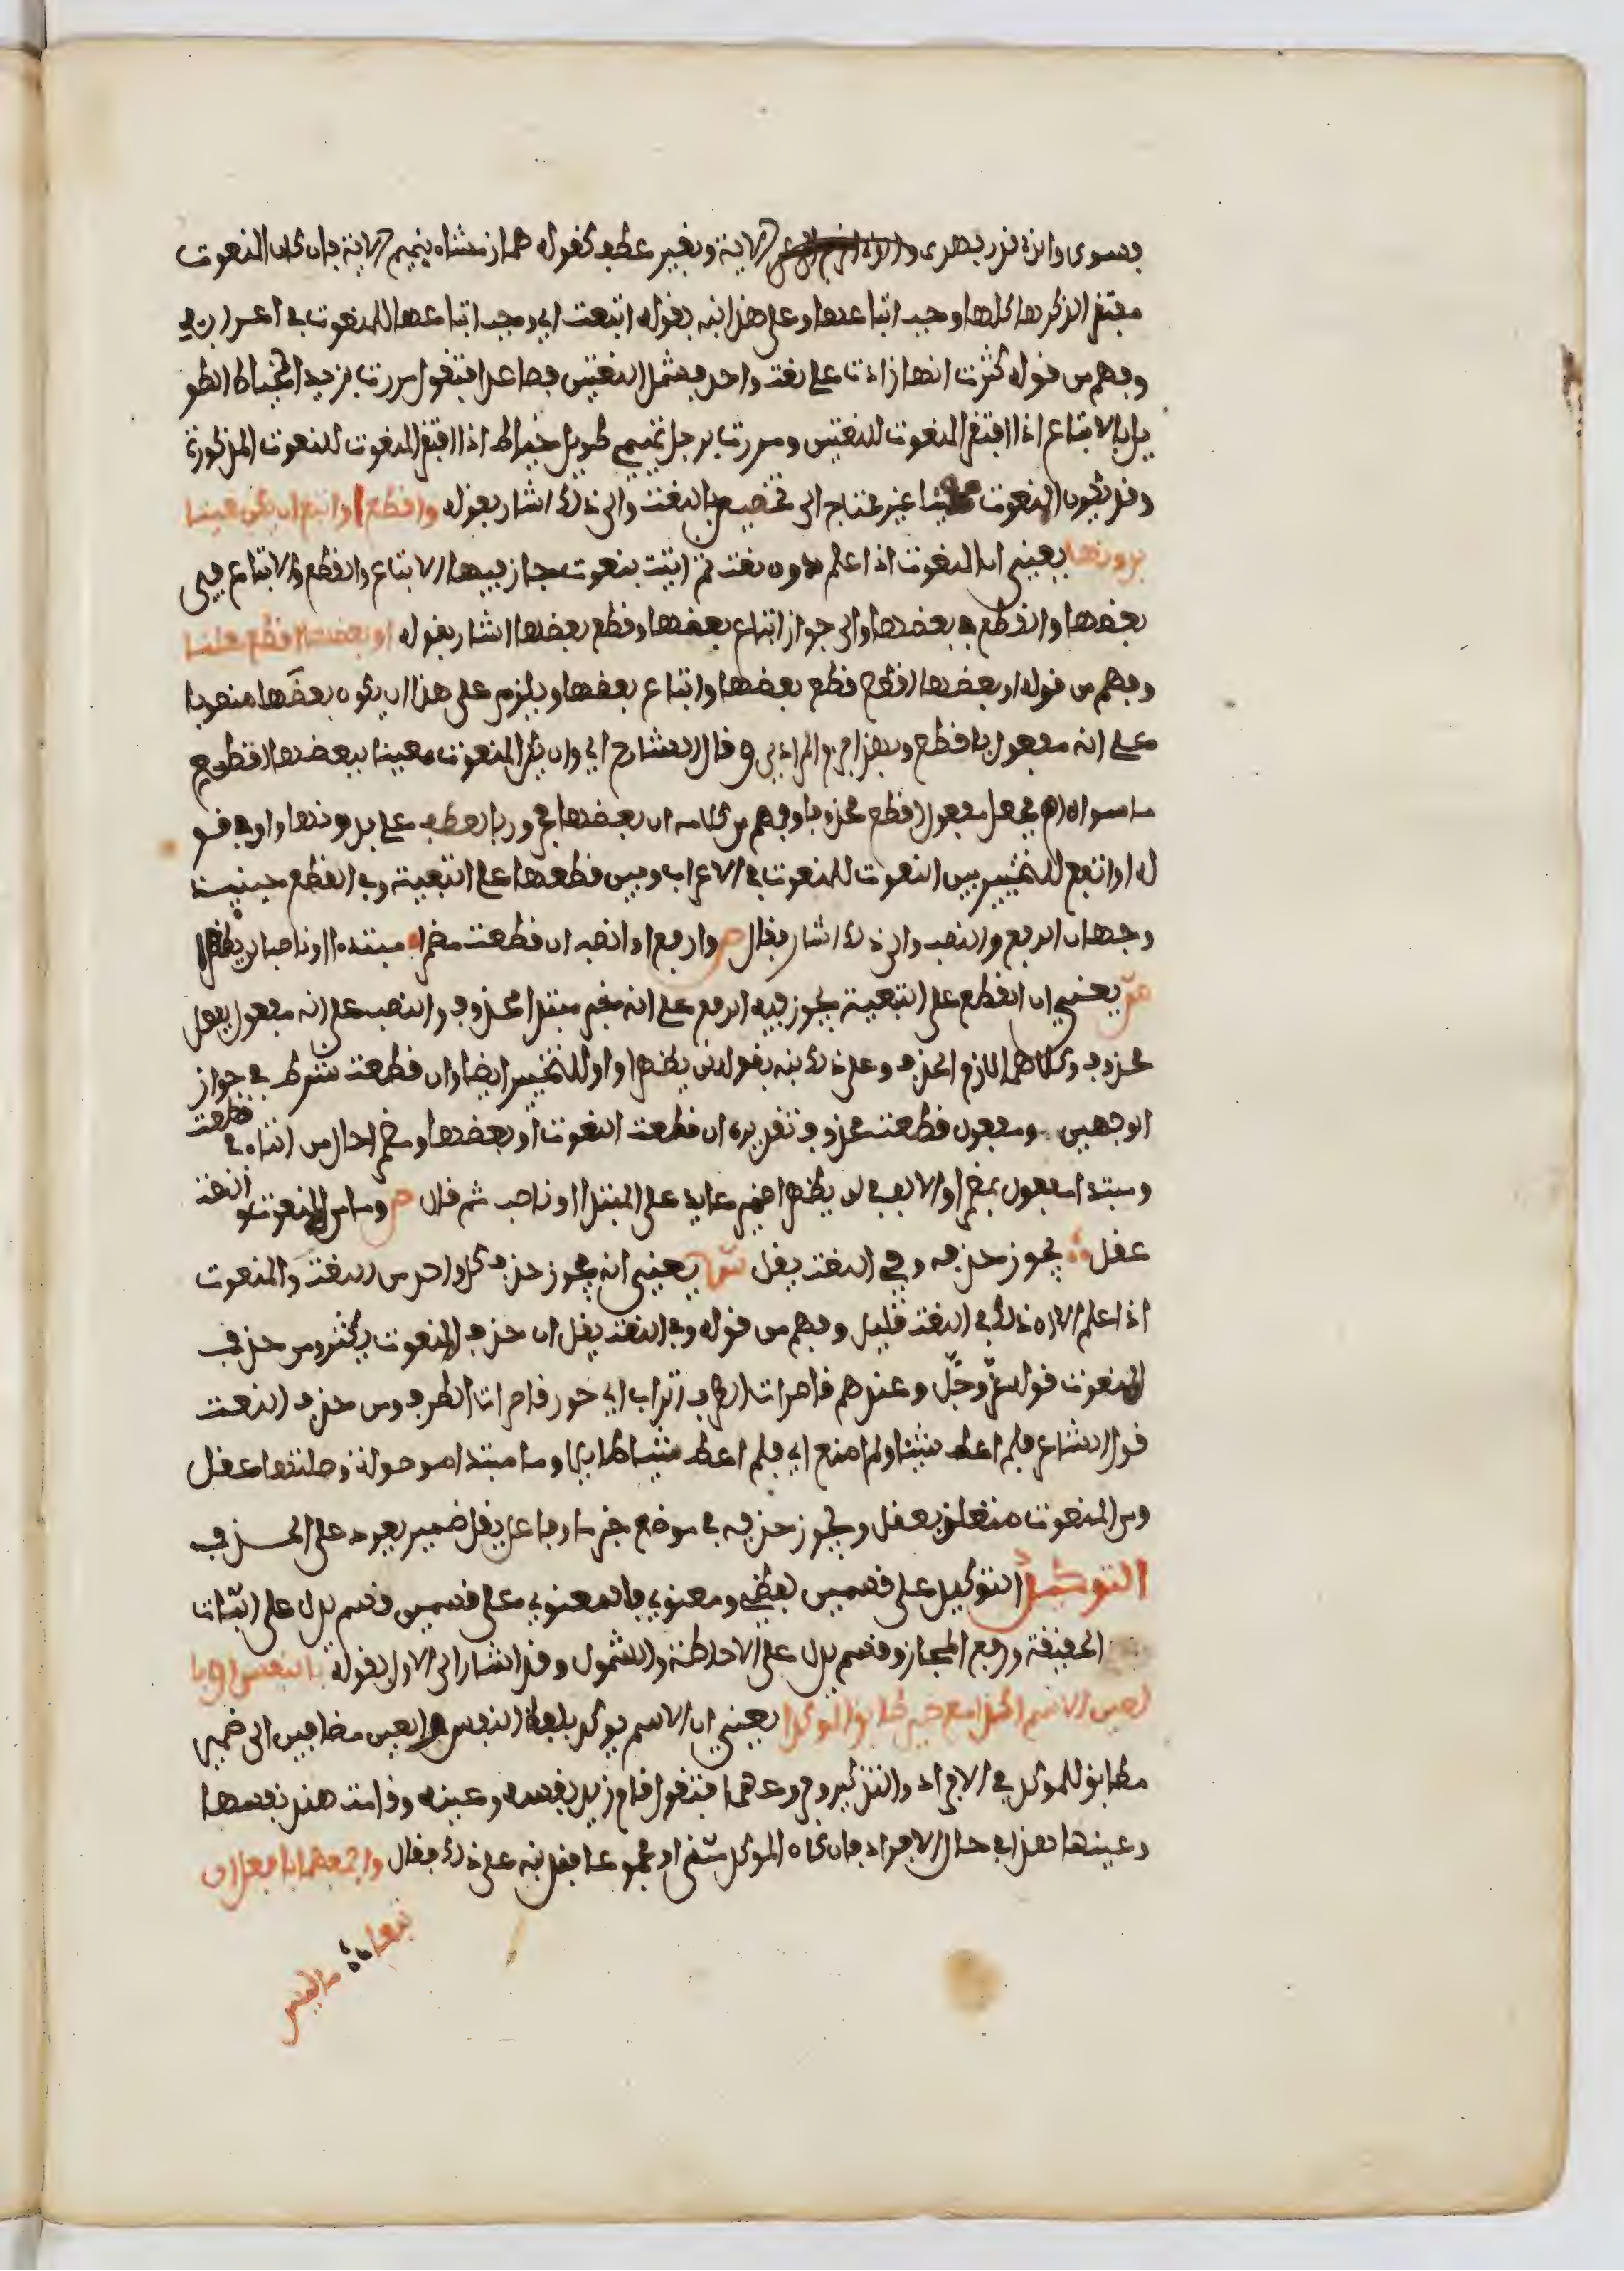 فسوى والذي قدر فهدى الآية وبغير عطف كقوله هماز مشاء بنميم الآية فان كان المنعوت
مفتقرا لذكرها كلها وجب اتباعها وعلى هذا نبه بقوله اتبعت اي وجب اتباعها للمنعوت في اعرابه
وفهم من قوله كثرت انها زادت على نعت واحد فيشمل النعتين فصاعدا فتقول مررت بزيد الخياط الطو
يل بالاتباع اذا افتقر المنعوت للنعتين ومررت برجل تميمي طويل خياط اذا افتقر المنعوت للنعوت المذكورة
وقد يكون المنعوت غير محتاج الى تخصيص بالنعت والى ذلك اشار بقوله واقطع او اتبع ان يكن معينا
بدونها يعني ان المنعوت اذا علم بدون نعت ثم اتيت بنعوت جاز فيها الاتباع والقطع والاتباع في
بعضها والقطع في بعضها والى جواز اتباع بعضها وقطع بعضها اشار بقوله او بعضها اقطع معلنا
وفهم من قوله او بعضها اقطع قطع بعضها واتباع بعضها ويلزم على هذا ان يكون بعضها منصوبا
على انه مفعول باقطع وبهذا جزم المرادي وقال الشارح اي وان يكن المنعوت معينا ببعضها اقطع
ما سواه فجعل مفعول اقطع محذوفا وفهم من كلامه ان بعضها مجرور بالعطف على بدونها واو في قو
له او اتبع للتخيير بين النعوت للمنعوت في الاعراب وبين قطعها على التبعية وفي القطع حينئذ
وجهان الرفع والنصب والى ذلك اشار فقال ص وارفع او انصب ان قطعت مضمرا مبتدءا او ناصبا لن يظهرا
ش يعني ان القطع على التبعية يجوز فيه الرفع على انه خبر مبتدا محذوف والنصب على انه مفعول بفعل
محذوف وكلاهما لازم الحذف وعلى ذلك نبه بقوله لن يظهرا واو للتخيير ايضا وان قطعت شرط في جواز
الوجهين ومفعول قطعت محذوف تقديره ان قطعت النعوت او بعضها ومضمرا حال من التاء في قطعت
ومبتدا مفعول بمضمرا والالف في لن يظهرا ضمير عايد على المبتدا او ناصب ثم قال ص وما من المنعوت والنعت
عقل يجوز حذفه وفي النعت يقل ش يعني انه يجوز حذف كل واحد من النعت والمنعوت
اذا علم الا ان ذلك في النعت قليل وفهم من قوله وفي النعت يقل ان حذف المنعوت يكثر ومن حذف
المنعوت قوله عز وجل وعندهم قاصرات الطرف اتراب اي حور قاصرات الطرف ومن حذف النعت
قول الشاعر فلم اعط شيئا ولم امنع اي فلم اعط شيئا طايلا وما مبتدا موصولة وصلتها عقل
ومن المنعوت متعلق بعقل ويجوز حذفه في موضع خبر ما وفاعل يقل ضمير يعود على الحذف
التوكيد التوكيد على قسمين لفظي ومعنوي فالمعنوي على قسمين قسم يدل على اثبات
الحقيقة ورفع المجاز وقسم يدل على الاحاطة والشمول وقد اشار الى الاول بقوله بالنفس او با
لعين الاسم اكدا مع ضمير طابق الموكدا يعني ان الاسم يوكد بلفظ النفس والعين مضافين الى ضمير
مطابق للموكد في الافراد والتذكير وفروعهما فتقول قام زيد نفسه وعينه وقامت هند نفسها
وعينها هذا في حال الافراد فان كان الموكد مثنى او مجموعا فقد نبه على ذلك فقال واجمعهما بافعل ان
تبعا ما ليس